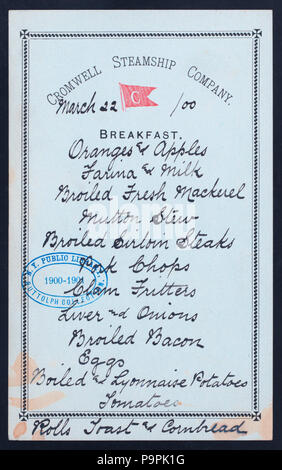 CROMWELL STEAMSHIP COMPANY.
C
March 22 /00
BREAKFAST.
Oranges & Apples
Farina & Milk
Broiled Fresh Mackerel
Mutton Stew
Broiled Sirloin Steaks
Pork Chops
Clam Fritters
Liver and Onions
Broiled Bacon
Eggs
Boiled & Lyonnaise Potatoes
Tomatoes
Rolls Toast & Cornbread
N. Y. PUBLIC LIBRARY
1900-1901
BUTTOLPH COLLECTION
alamy
alamy stock photo
P9PK1G
www.alamy.com